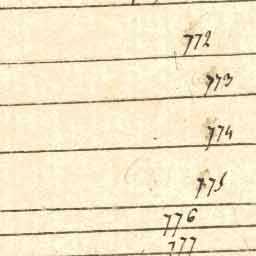 772
773
774
775
776
777